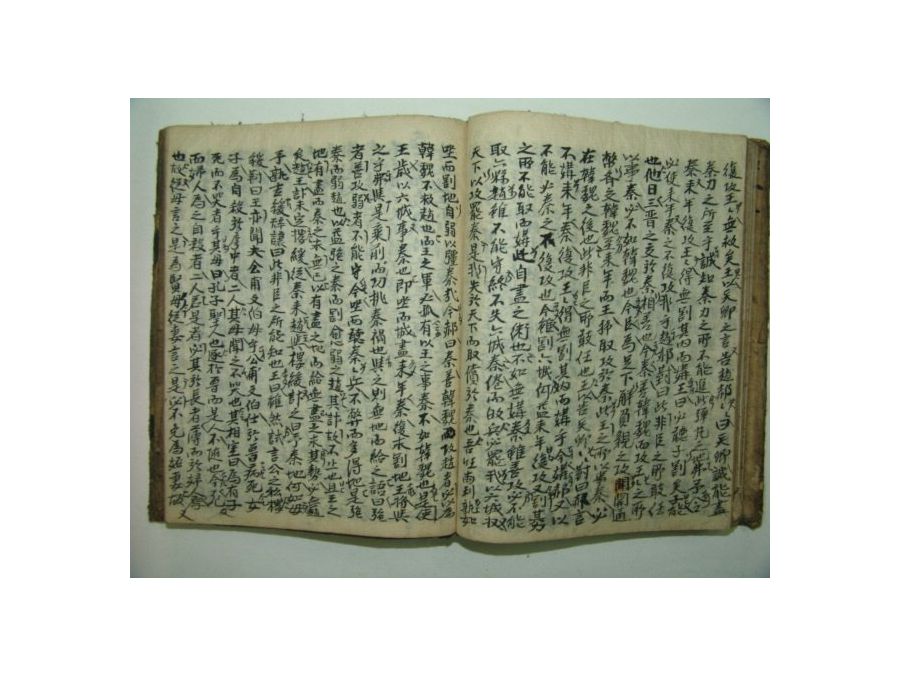 復攻王亡無救矣王以天卿之言告趙郝郝曰天卿誠能盡
秦力之所至乎誠知秦力之所不能進此彈丸之地弗予令
秦來年復攻王王得無割其內而媾乎王曰必聽子割矣子能
必使來年秦之不復攻我乎趙郝對曰此非臣之所敢任
也他日三晉之交於秦相善也今秦善韓魏而攻王王之所
以事秦必不如韓魏也今臣爲足下解負親之攻開關通
幣齊交韓魏至來年而王獨取攻於秦此王之所以事秦必
在韓魏之後也此非臣之所敢任也王以告天卿對曰郝言
不媾來年秦復攻王王得無割其內而媾乎今媾郝又以
不能必秦之不復攻也今雖割六城何益來年復攻又割其力
之所不能取而媾此自盡之術也不如無媾秦雖善攻不能
取六縣趙雖不能守終不失六城秦倦而歸兵必罷我以六城收
天下以攻罷秦是我失於天下而取償於秦也吾以尚利孰如
坐而割地自弱以彊秦哉今郝曰秦善韓魏而攻趙者必以爲
韓魏不救趙也而王之軍必孤有以王之事秦不如韓魏也是使
王歲以六城事秦也即坐而城盡來年秦復求割地王將與
之乎弗與是棄前而功挑秦禍也與之則無地而給之語曰強
者善攻弱者不能守今坐而聽秦秦兵不弊而多得地是強
秦而弱趙也以益強之秦而割愈弱之趙其計故不止也且王之
地有盡而秦之求無已以有盡之地而給無盡之求其勢必無趙
矣趙王計未定樓緩從秦來趙王與樓緩計之曰予秦地何如毋
予孰吉緩辭讓曰此非臣之所能知也王曰雖然試言公之私樓
緩對曰王亦聞夫公甫文伯母乎公甫文伯仕於魯病死女
子爲自殺於房中者二人其母聞之不哭也其相室曰焉有子
死而不哭者乎其母曰孔子賢人也逐於魯而是人不隨也今死
而婦人爲之自殺者二人若是者必其於長者薄而於婦人厚
也故從母言之是爲賢母從妻言之是必不免爲妬妻故